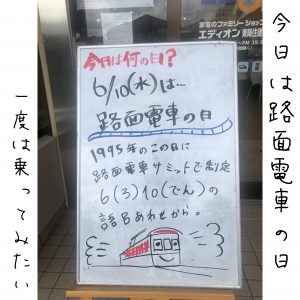 今日は路面電車の日
一度は乗ってみたい
家電のファミリーショップ
エディオン
今日は何の日?
6/10(水)は…
路面電車の日
1995年のこの日に
路面電車サミットで制定
6(ろ)10(でん)の
語呂あわせから。